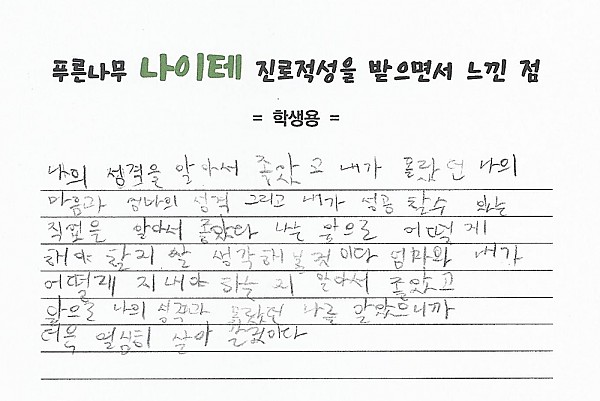 푸른나무 나이테 진로적성을 받으면서 느낀 점
= 학생용 =
나의 성격을 알아서 좋았고 내가 몰랐던 나의
마음과 엄마의 성격 그리고 내가 성공 할수 있는
직업을 알아서 좋았다 나는 앞으로 어떻게
해야 할지 잘 생각해볼것이다 엄마와 내가
어떻게 지내야 하는지 알아서 좋았고
앞으로 나의 성격과 몰랐던 나를 알았으니까
더욱 열심히 살아 갈것이다